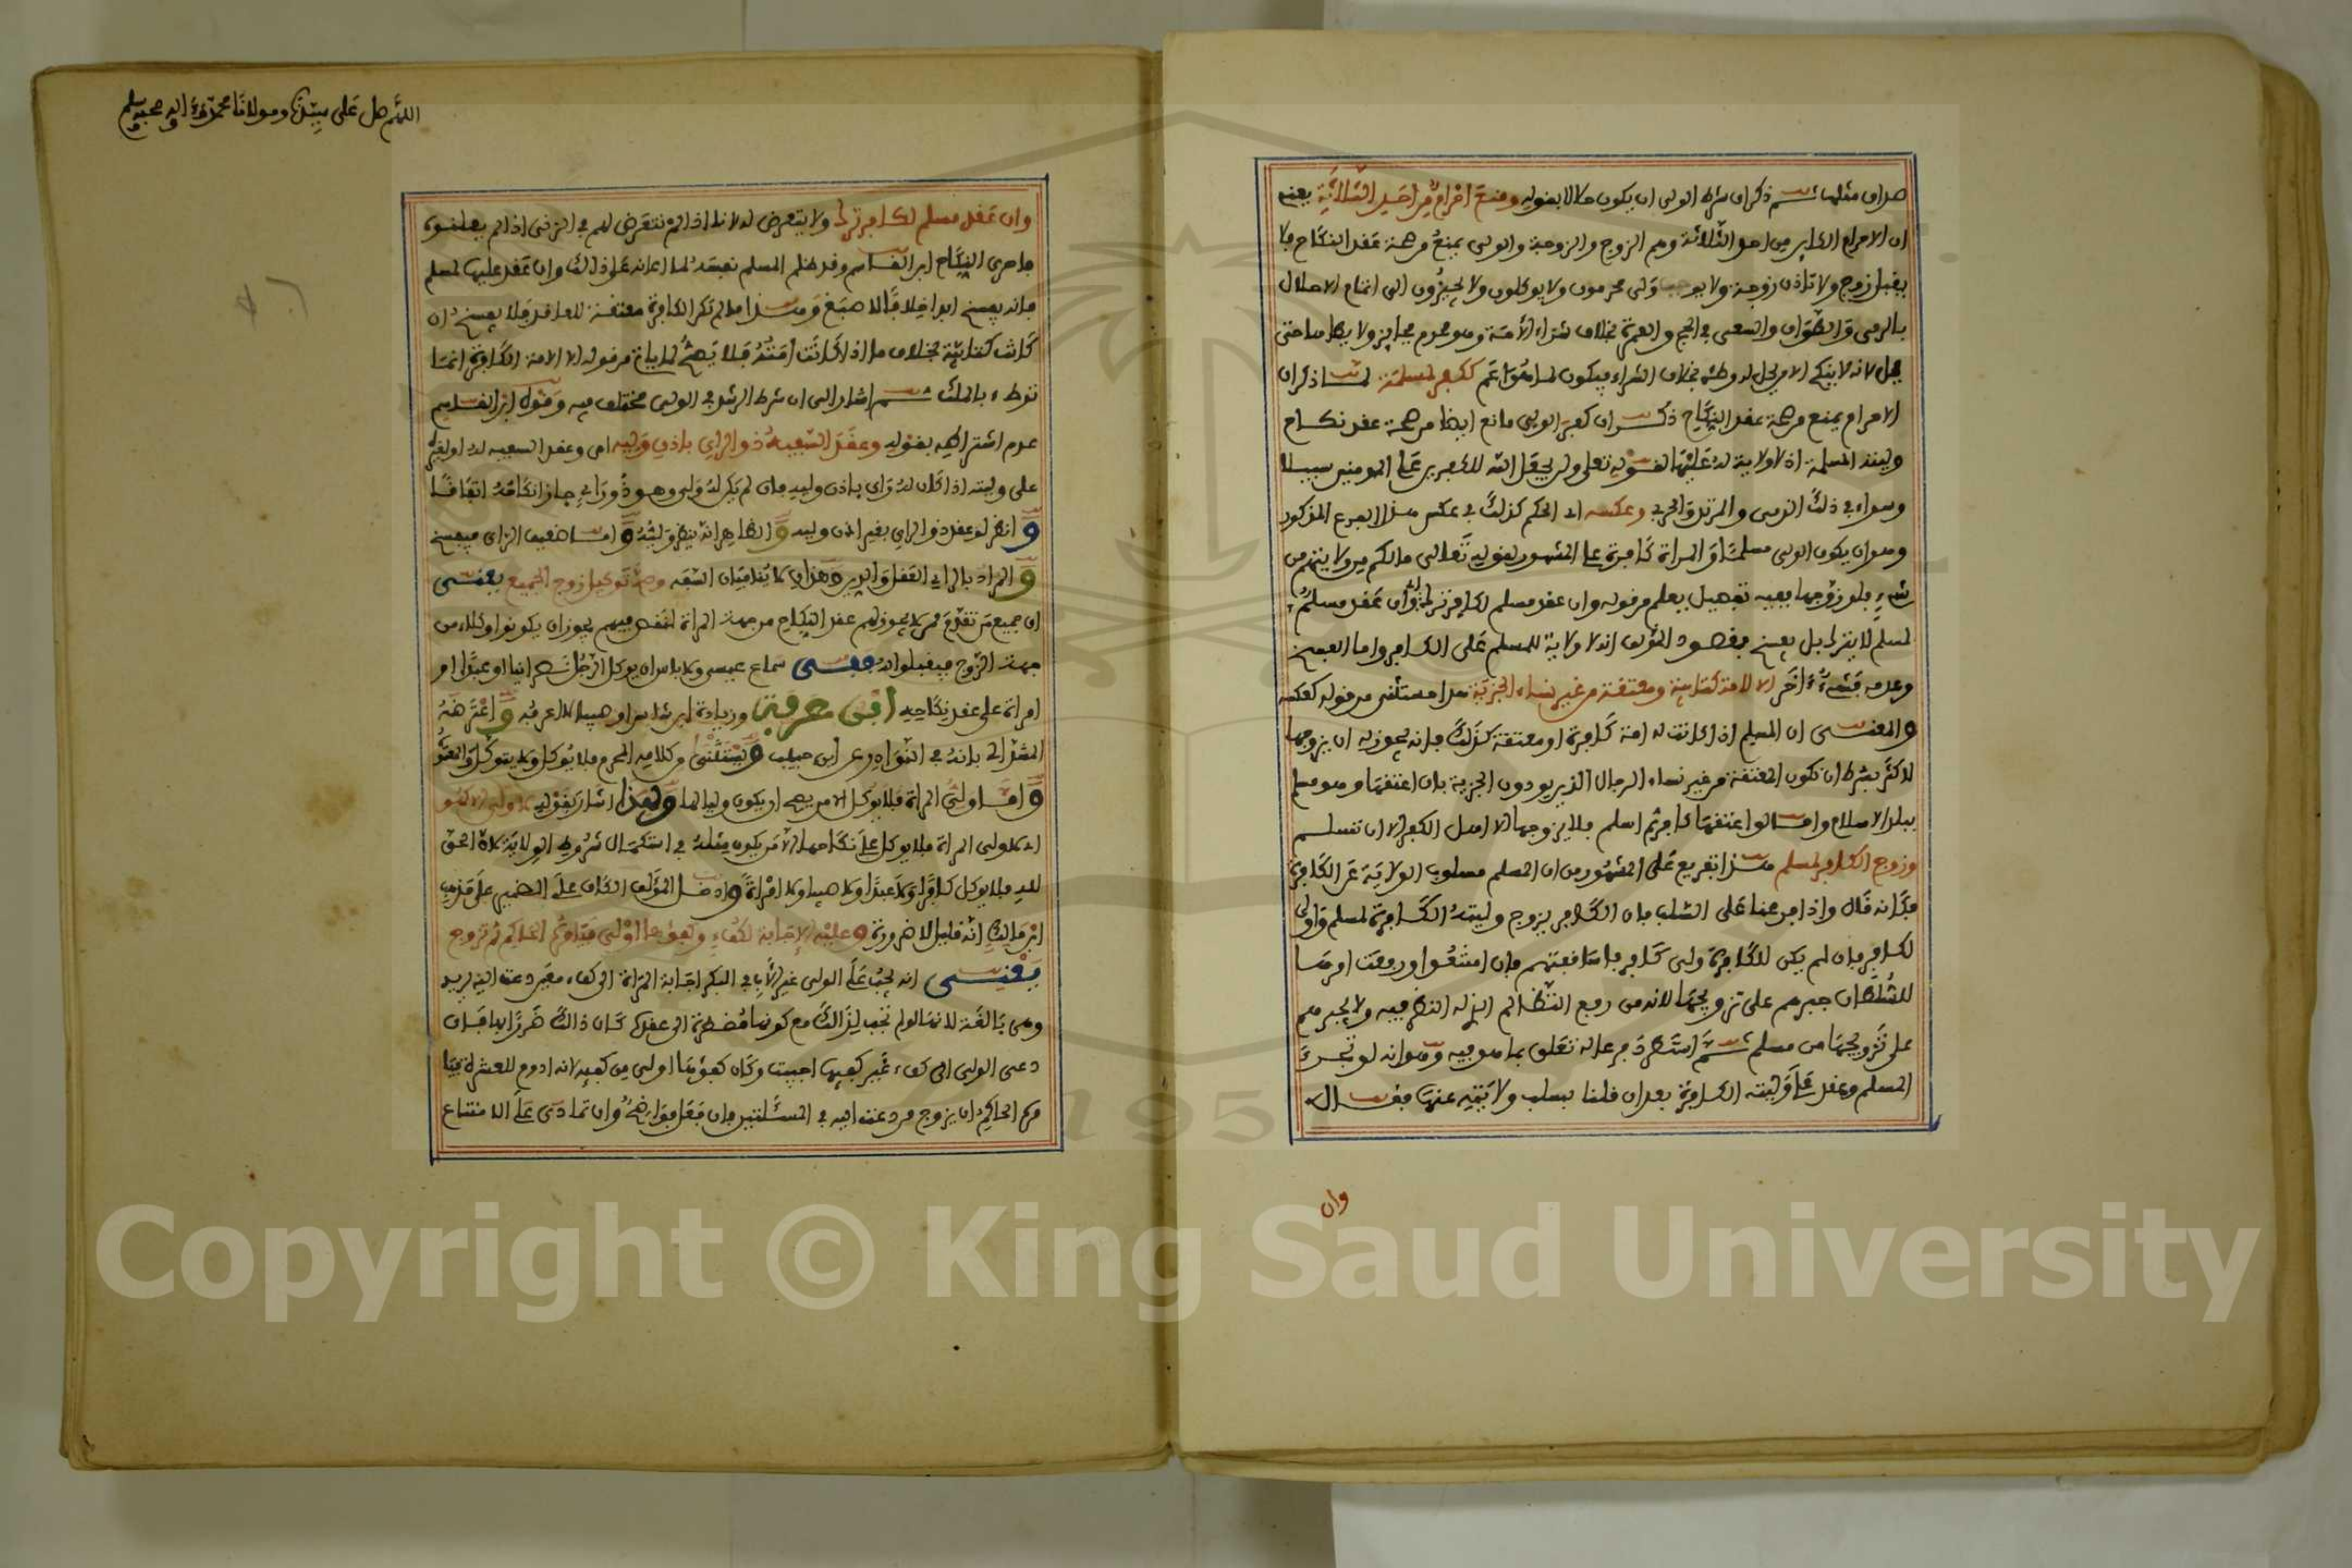 صداق مثلها ثم ذكر ان شرط الولي ان يكون حلالا بقوله ومنع احرام من احد الثلاثة يعني
ان الاحرام الكاين من احد الثلاثة وهم الزوج والزوجة والولي يمنع من صحة عقد النكاح فلا
يقبل زوج ولا تاذن زوجة ولا يوجب ولي محرمون ولا يوكلون ولا يجيزون الى اتمام الاحلال
بالرمي والطواف والسعي في الحج والعمرة بخلاف شراء الامة وهو محرم فجايز ولا يطاها حتى
يحل لانه لا ينكح الا من يحل له وطئه بخلاف الشراء فيكون لما هو اعم ككفر لمسلمة لما ذكر ان
الاحرام يمنع من صحة عقد النكاح ذكر ان كفر الولي مانع ايضا من صحة عقد نكاح
وليته المسلمة اذ لا ولاية له عليها لقوله تعلى ولن يجعل الله للكفرين على المومنين سبيلا
وسواء في ذلك الذمي والمرتد والحربي وعكسه اي الحكم كذلك في عكس هذا الفرع المذكور
وهو ان يكون الولي مسلما والمراة كافرة على المشهور لقوله تعالى مالكم من ولايتهم من
شيء فلو زوجها ففيه تفصيل يعلم من قوله وان عقد مسلم لكافر ترك وان عقد مسلم
لمسلم لا يترك بل يفسخ فقصود المؤلف انه لا ولاية للمسلم على الكافر واما الفسخ
وعدمه فشيء اخر الا لامة كتابية ومعتقته من غير نساء الجزية هذا مستثنى من قوله كعكسه
والمعنى ان المسلم اذا كانت له امة كافرة او معتقة كذلك فانه يجوز له ان يزوجها
لاكن بشرط ان تكون المعتقة من غير نساء الرجال الذين يودون الجزية بان اعتقها وهو مسلم
ببلد الاسلام واما لو اعتقها كافر ثم اسلم فلا يزوجها الا اهل الكفر الا ان تسلم
وزوج الكافر لمسلم هذا تفريع على المشهور من ان المسلم مسلوب الولاية عن الكافرة
فكانه قال واذا فرعنا على السلب فان الكافر يزوج وليته الكافرة لمسلم واولى
لكافر فان لم يكن للكافرة ولي كافر فاساقفتهم فان امتنعوا ورفعت امرها
للسلطان جبرهم على تزويجها لانه من رفع التظالم الذي له النظر فيه ولا يجبرهم
على تزويجها من مسلم ثم استطرد فرعا له تعلق بما هو فيه وهو انه لو تجرا
المسلم وعقد على وليته الكافرة بعد ان قلنا بسلب ولايته عنها فقال
وان
اللهم صل على سيدنا ومولانا محمد وءاله وصحبه وسلم
وان عقد مسلم لكافر ترك ولا يتعرض له لانا اذا لم نتعرض لهم في الزنى اذا لم يعلنوه
فاحرى النكاح ابن القاسم وقد ظلم المسلم نفسه لما اعانه على ذلك وان عقد عليها لمسلم
فانه يفسخ ابدا خلافا لاصبغ وهذا ما لم تكن الكافرة معتقة للعاقد فلا يفسخ ان
كانت كتابية بخلاف ما اذا كانت امته فلا يصح لما ياتي من قوله الا الامة الكافرة انما
توطء بالملك ثم اشار الى ان شرط الرشد في الولي مختلف فيه وقول ابن القاسم
عدم اشتراطه بقوله وعقد السفيه ذو الراي باذن وليه اي وعقد السفيه له او لغيره
على وليته اذا كان له راي باذن وليه فان لم يكن له ولي وهو ذو راي جاز انكاحه اتفاقا
وانظر لو عقد ذو الراي بغير اذن وليه والظاهر انه ينظر وليه واما ضعيف الراي فيفسخ
والمراد بالراي العقل والدين وهذان لا ينافيان السفه وصح توكيل زوج الجميع يعني
ان جميع من تقدم ممن لا يجوز لهم عقد النكاح من جهة المراة لنقص فيهم يجوز ان يكونوا وكلاء من
جهة الزوج فيقبلوا له ففي سماع عيسى ولا باس ان يوكل الرجل نصرانيا او عبدا او
امراة على عقد نكاحه ابن عرفة وزيادة ابن شاس او صبيا لا اعرفه واعترضه
المشذالي بانه في النوادر عن ابن حبيب ويستثنى من كلامه المحرم فلا يوكل ولا يتوكل والمعتوه
واما ولي المراة فلا يوكل الا من يصح ان يكون وليا لها ولهذا اشار بقوله لا ولي الا كهو
اي لا ولي المراة فلا يوكل على نكاحها الا من يكون مثله في استكمال شروط الولاية لان الحق
لله فلا يوكل كافرا ولا عبدا ولا صبيا ولا امراة وادخل المؤلف الكاف على الضمير على مذهب
ابن مالك انه قليل لا ضرورة وعليه الاجابة لكفء وكفؤها اولى فيامره الحاكم ثم تزوج
يعني انه يجب على الولي غير الاب في البكر اجابة المراة الى كفء معين دعت اليه يريد
وهي بالغة لانها لو لم تجب لذالك مع كونها مضطرة الى عقدك كان ذالك ضررا بها فان
دعى الولي الى كفء غير كفيها اجيبت وكان كفؤها اولى من كفيه لانه ادوم للعشرة بينهما
فيامر الحاكم ان يزوج من دعت اليه في المسئلتين فان فعل فواضح وان تمادى على الامتناع